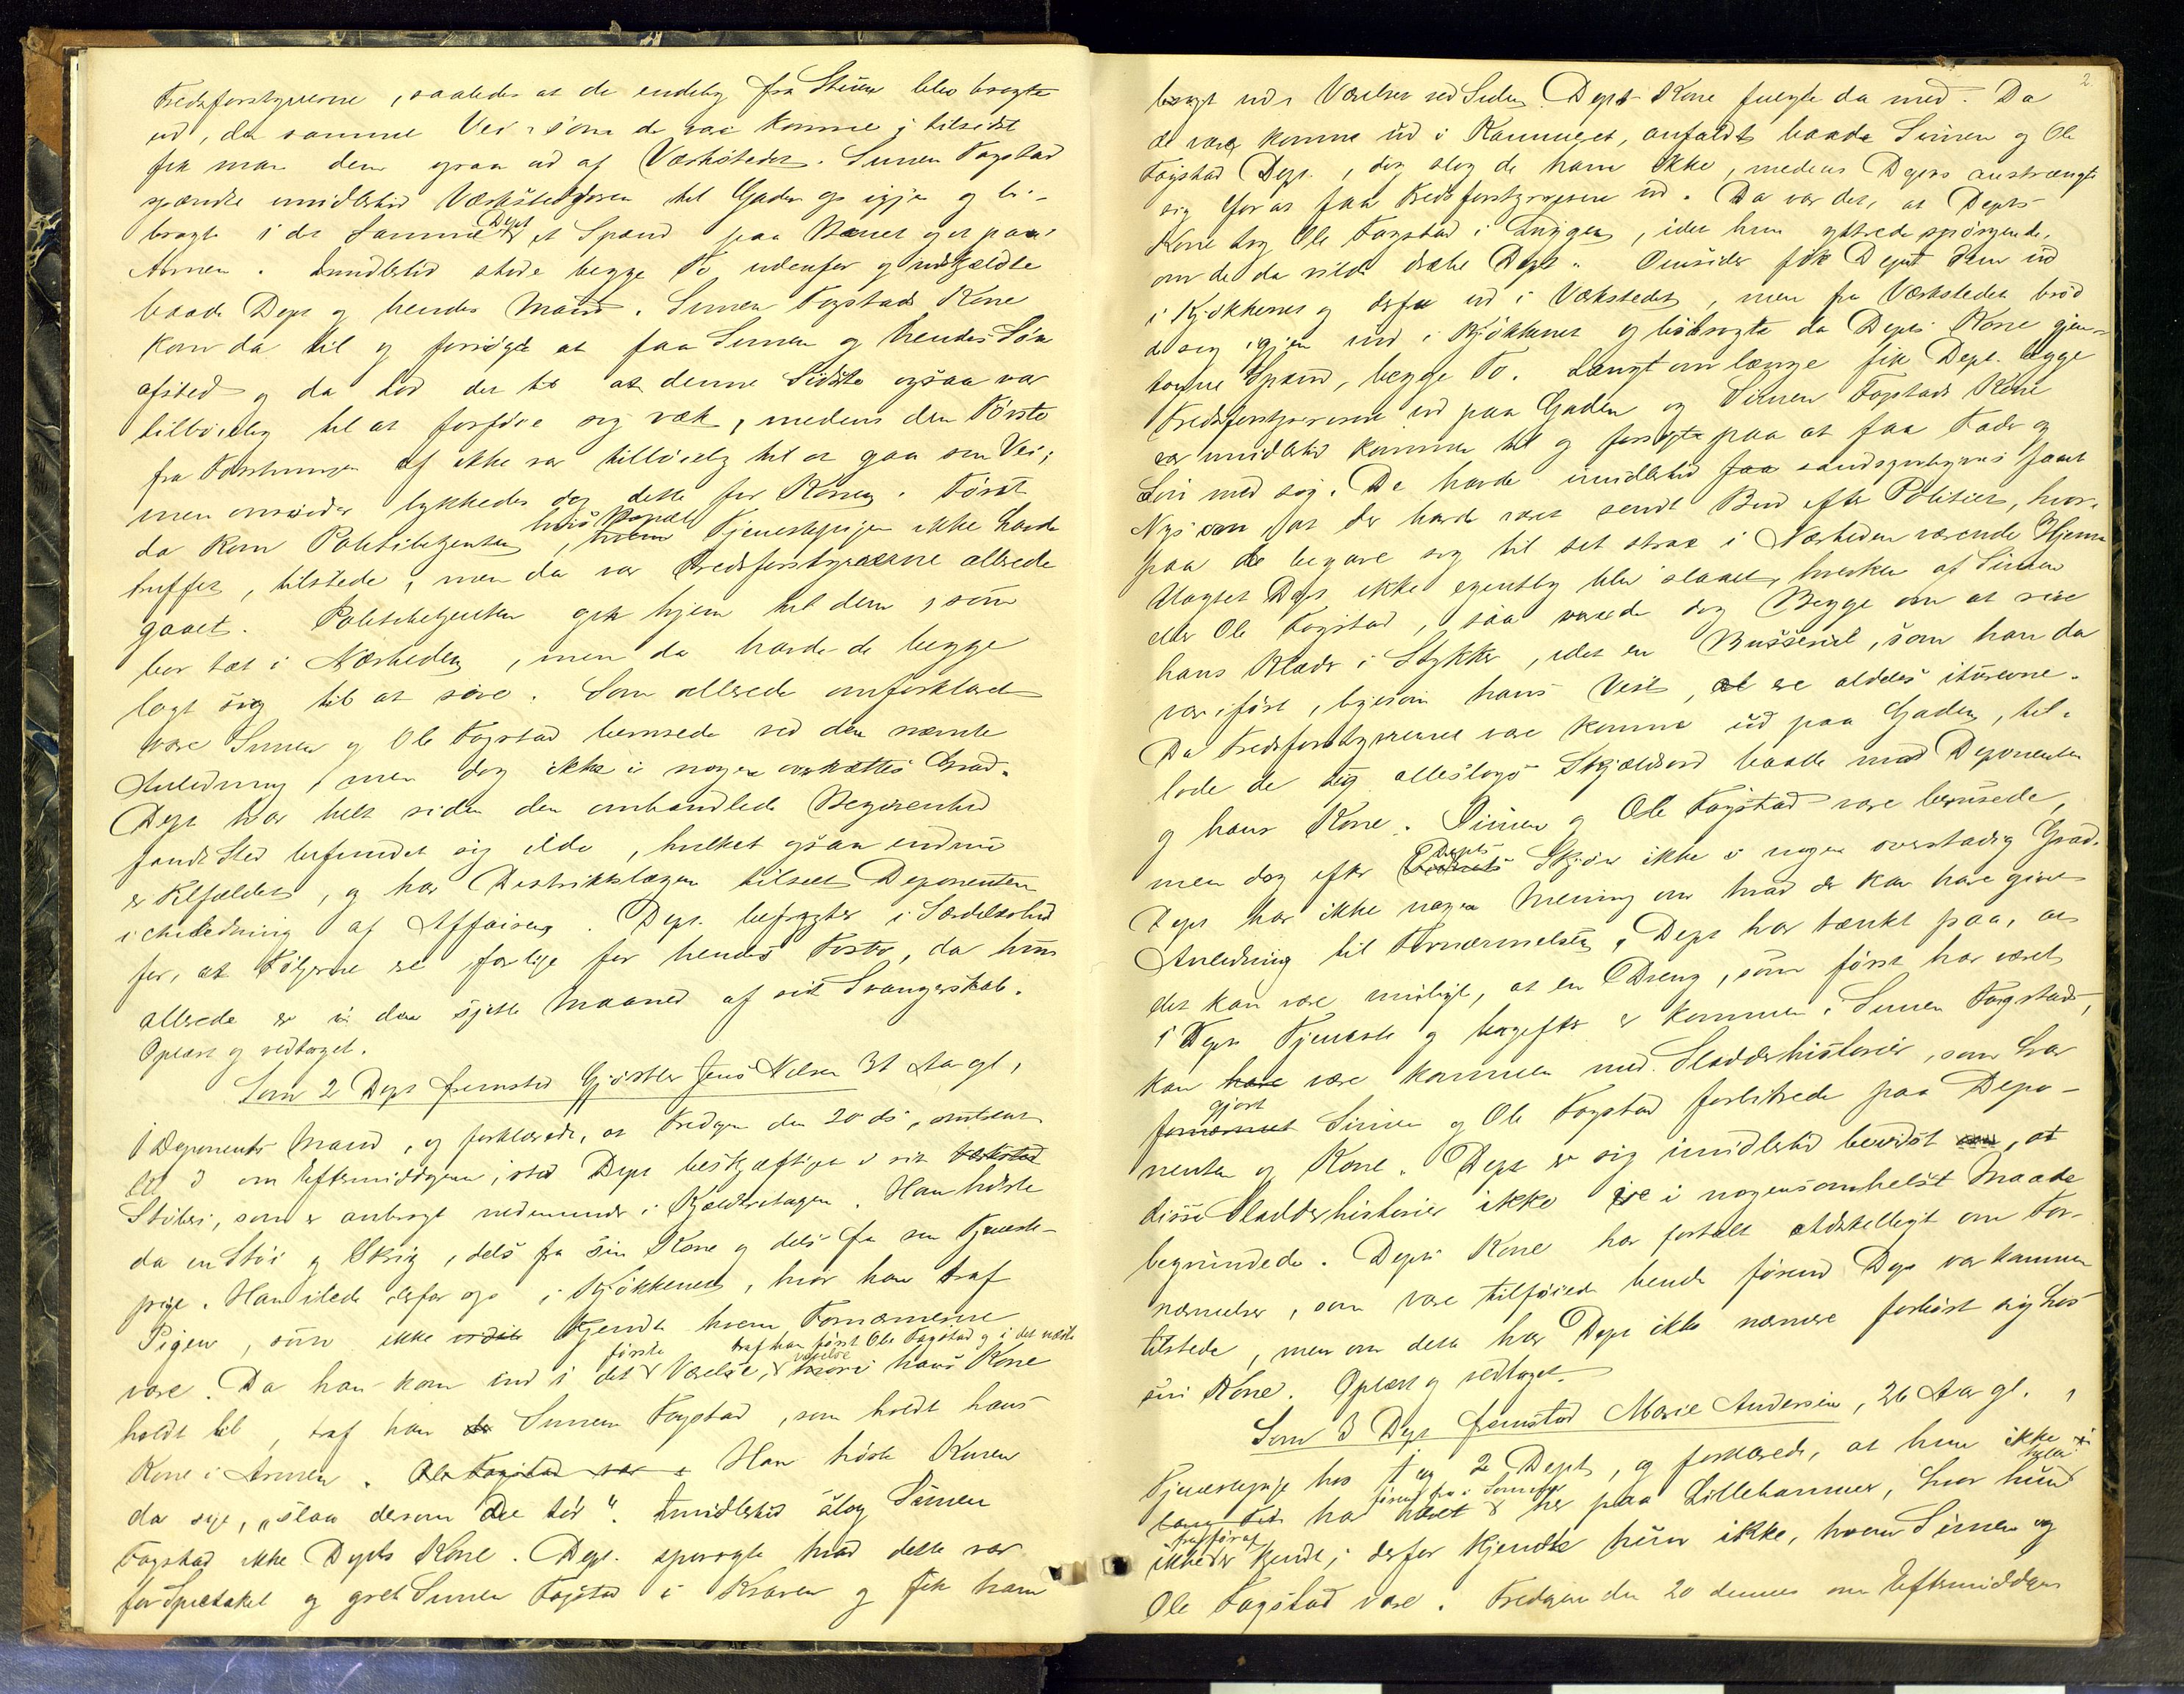 Fredsforstyrrerne, saaledes at de endelig fra Stuen blev bragte
ud, den samme Vei som de var komne; tilsidst
fik man dem ogsaa ud af Værkstedet. Simen Fogstad
spændte imidlertid Værkstedsdøren til Gaden op igjen og bi-
bragte i det Samme Dept et Spænd paa Benet og et paa
Armen. Imidlertid stode begge To udenfor og udskjældte
baade Dept og hendes Mand. Simen Fogstads Kone
kom da til og forsøgte at faa Simen og hendes Søn
afsted og da lod det til at denne Sidste ogsaa var
tilbøielig til at forføie sig væk, medens den Første
fra Først af ikke var tilbøielig til at gaa sin Vei;
men omsider lykkedes dog dette for Konen. Først
da kom Politibetjenten, hvis Bopæl Tjenestepigen ikke havde
truffet, tilstede, men da var Fredsforstyrrerne allerede
gaaet. Politibetjenten gik hjem til dem, som
bor tæt i Nærheden, men da havde de begge
lagt sig til at sove. Som allerede omforklaret
vare Simen og Ole Fogstad berusede ved den nævnte
Anledning, men dog ikke i nogen overstadig Grad.
Dept har helt siden den omhandlede Begivenhed
fandt Sted befundet sig ilde, hvilket ogsaa endnu
er Tilfældet, og har Distriktslægen tilseet Deponenten
i Anledning af Affairen. Dept. befrygter i Særdeleshed
for, at Følgerne er farlige for hendes Foster, da hun
allerede er i den sjette Maaned af sit Svangerskab.
Oplæst og vedtaget.
Som 2 Dept fremstod Gjørtler Jens Nilsen 31 Aar gl,
1 Deponents Mand, og forklarede, at Fredagen den 20 ds, omtrent
Kl 3 om Eftermiddagen, stod Dept beskjæftiget i sit Værksted
Støberi, som er anbragt nedenunder i Kjælderetagen. Han hørte
da en Støi og Skrig, dels fra sin Kone og dels fra sin Tjeneste-
pige. Han ilede derfor op i Kjøkkenet, hvor han traf
Pigen, som ikke vidste kjendte hvem Fornærmerne
vare. Da han kom ind i det første Værelse, traf han først Ole Fogstad og i det næste Værelse hvori hans Kone
holdt til, traf han da Simen Fogstad, som holdt hans
Kone i Armen. Ole Fogstad var i Han hørte Konen
da sige, "slaa dersom De tør". Imidlertid slog Simen
Fogstad ikke Depts Kone. Dept. spurgte hvad dette var
for Spetakel og greb Simen Fogstad i Kraven og fik ham
2
bragt ud i Værelset ved Siden. Depts Kone fulgte da med. Da
de vare komne ud i Kammeret, anfaldt baade Simen og Ole
Fogstad Dept., dog slog de ham ikke, medens Depts anstrængte
sig for at faa Fredsforstyrrerne ud. Da var det, at Depts
Kone tog Ole Fogstad i Luggen, idet hun yttrede spørgende,
om de da vilde dræbe Dept. Omsider fik Dept dem ud
i Kjøkkenet og derfra ud i Værkstedet, men fra Værkstedet brød
de sig igjen ind i Kjøkkenet og bibragte da Depts Kone gjen-
tagne Spænd, begge To. Langt om længe fik Dept. begge
Fredsforstyrrerne ud paa Gaden og Simen Fogstads Kone
var imidlertid kommen til og forsøgte paa at faa Fader og
Søn med sig. De havde imidlertid faa sandsynligvis faaet
Nys om, at der havde været sendt Bud efter Politiet, hvor-
paa de begave sig til det strax i Nærheden værende Hjem
Uagtet Dept ikke egentlig blev slaaet, hverken af Simen
eller Ole Fogstad, saa vare de dog Begge om at rive
hans Klæder i Stykker, idet en Busserul, som han da
var iført, ligesom hans Vest, al ere aldeles iturevne.
Da Fredsforstyrrerne vare komne ud paa Gaden, til-
lode de sig alleslags Skjældsord baade mod Deponenten
og hans Kone. Simen og Ole Fogstad vare berusede,
men dog efter Depts Skjøn ikke i nogen overstadig Grad.
Dept har ikke nogen Mening om hvad der kan have givet
Anledning til Fornærmelsen. Dept har tænkt paa, at
det kan være muligt, at en Dreng, som først har været
i Depts Tjeneste og bagefter er kommen i Simen Fogstads,
kan have være kommen med Sladderhistorier, som har
fornærmet gjort Simen og Ole Fogstad forbitrede paa Depo-
nenten og Kone. Dept er sig imidlertid bevidst om, at
disse Sladderhistorier ikke ere i nogensomhelst Maade
begrundede. Depts Kone har fortalt Adskilligt om For-
nærmelser, som vare tilføiede hende førend Dept var kommen
tilstede, men om dette har Dept ikke nærmere forhørt sig hos
sin Kone. Oplæst og vedtaget.
Som 3 Dept fremstod Marie Andersen, 26 Aar gl.,
Tjenestepige hos 1 og 2 Depts, og forklarede, at hun ikke
lang Tid har været førend fra i Sommer her paa Lillehammer, hvor hun
ikke er kjendt; derfor kjendte hun ikke, hvem Simen og
Ole Fogstad vare. Fredagen den 20 dennes om Eftermiddagen